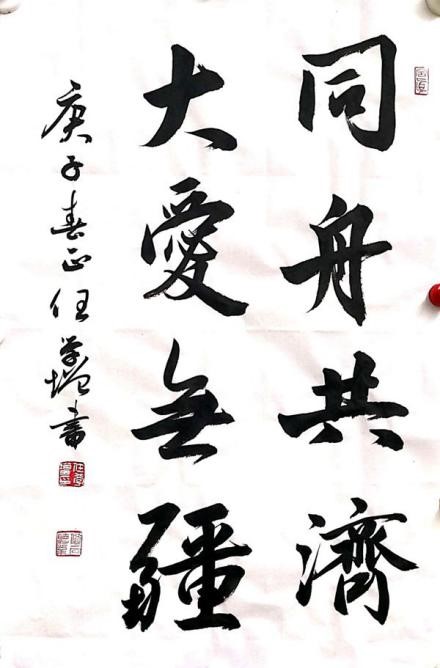 同舟共濟
大愛無疆
庚子春正任学增書